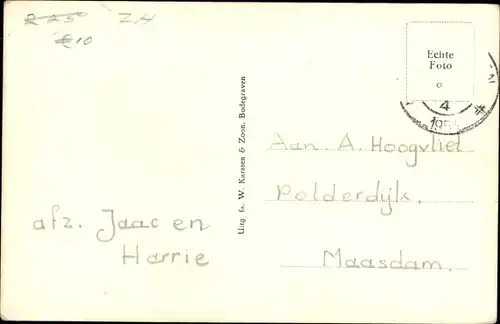 2 25 ZH
€10
Echte
Foto
4
Uitg fa. W. Karssen & Zoon, Bodegraven
Aan. A. Hoogvliet
Polderdijk.
Maasdam.
afz. Jaac en
Harrie